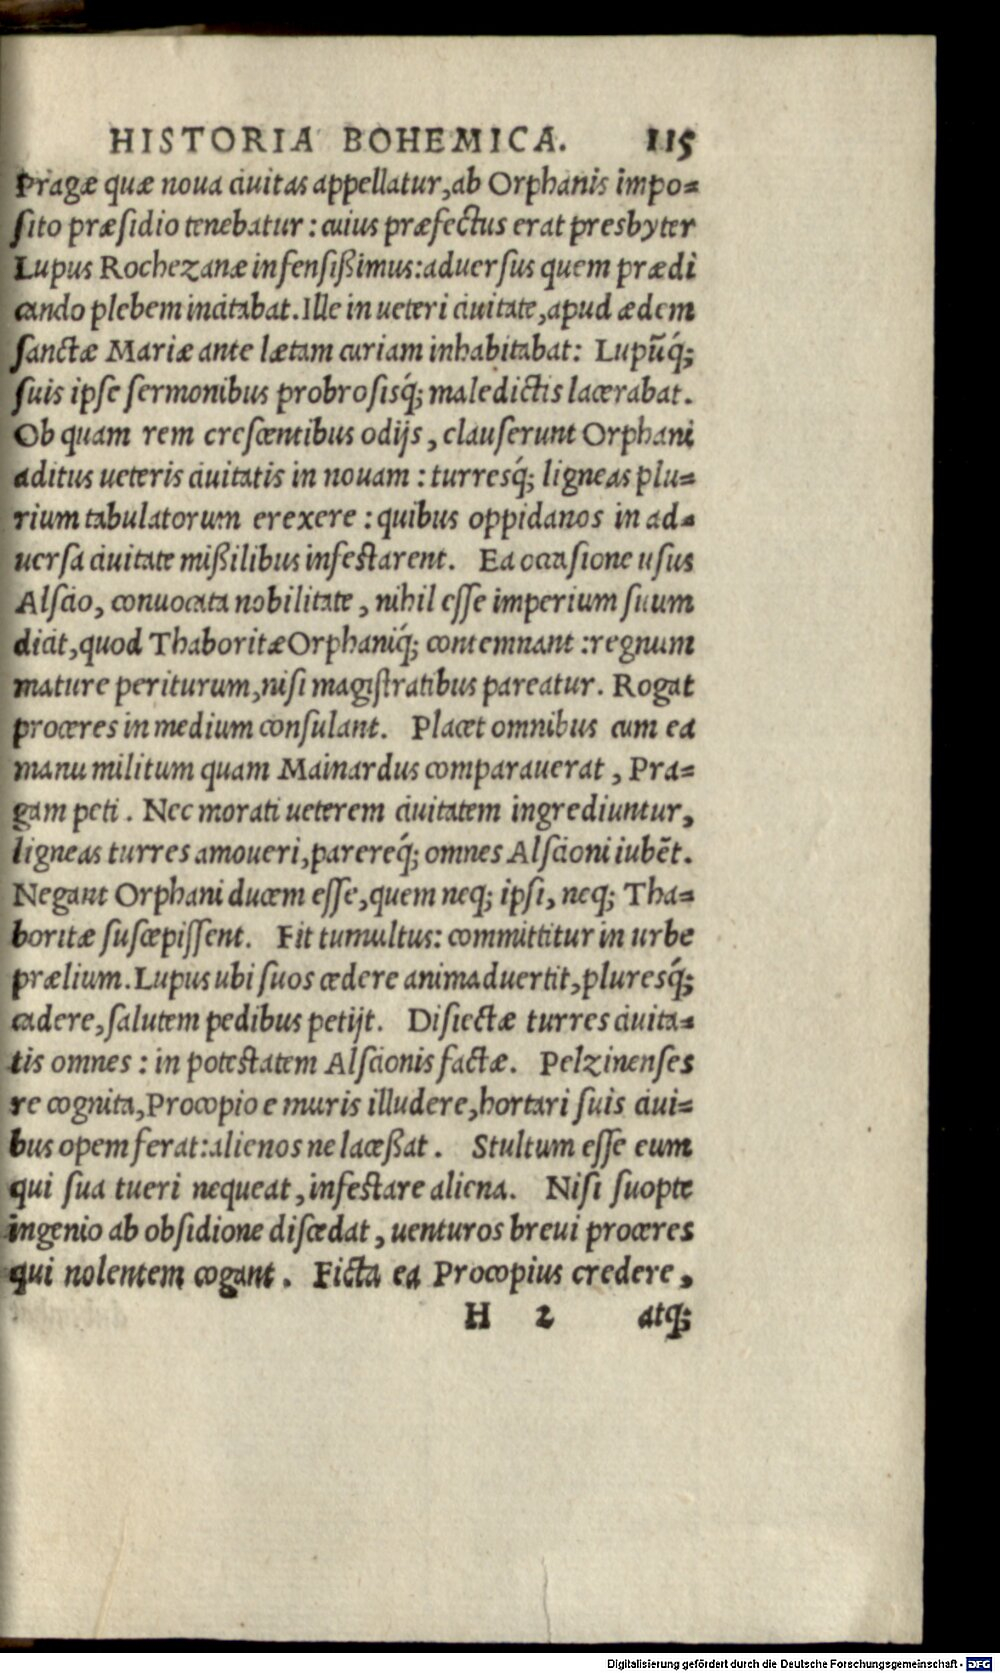 HISTORIA BOHEMICA. 115
Pragæ quæ noua ciuitas appellatur, ab Orphanis impo=
sito præsidio tenebatur: cuius præfectus erat presbyter
Lupus Rochezanæ infensißimus: aduersus quem prædi
cando plebem incitabat. Ille in ueteri ciuitate, apud ædem
sanctæ Mariæ ante lætam curiam inhabitabat: Lupũq́;
suis ipse sermonibus probrosisq́; maledictis lacerabat.
Ob quam rem crescentibus odijs, clauserunt Orphani
aditus ueteris ciuitatis in nouam: turresq́; ligneas plu=
rium tabulatorum erexere: quibus oppidanos in ad=
uersa ciuitate mißilibus infestarent. Ea occasione usus
Alscio, conuocata nobilitate, nihil esse imperium suum
dicit, quod Thaboritæ Orphaniq́; contemnant: regnum
mature periturum, nisi magistratibus pareatur. Rogat
proceres in medium consulant. Placet omnibus cum ea
manu militum quam Mainardus comparauerat, Pra=
gam peti. Nec morati ueterem ciuitatem ingrediuntur,
ligneas turres amoueri, parereq́; omnes Alscioni iubẽt.
Negant Orphani ducem esse, quem neq; ipsi, neq; Tha=
boritæ suscepissent. Fit tumultus: committitur in urbe
prælium. Lupus ubi suos cedere animaduertit, pluresq́;
cadere, salutem pedibus petijt. Disiectæ turres ciuita=
tis omnes: in potestatem Alscionis factæ. Pelzinenses
re cognita, Procopio e muris illudere, hortari suis ciui=
bus opem ferat: alienos ne laceßat. Stultum esse eum
qui sua tueri nequeat, infestare aliena. Nisi suopte
ingenio ab obsidione discedat, uenturos breui proceres
qui nolentem cogant. Ficta ea Procopius credere,
H 2 atq;
Digitalisierung gefördert durch die Deutsche Forschungsgemeinschaft - DFG